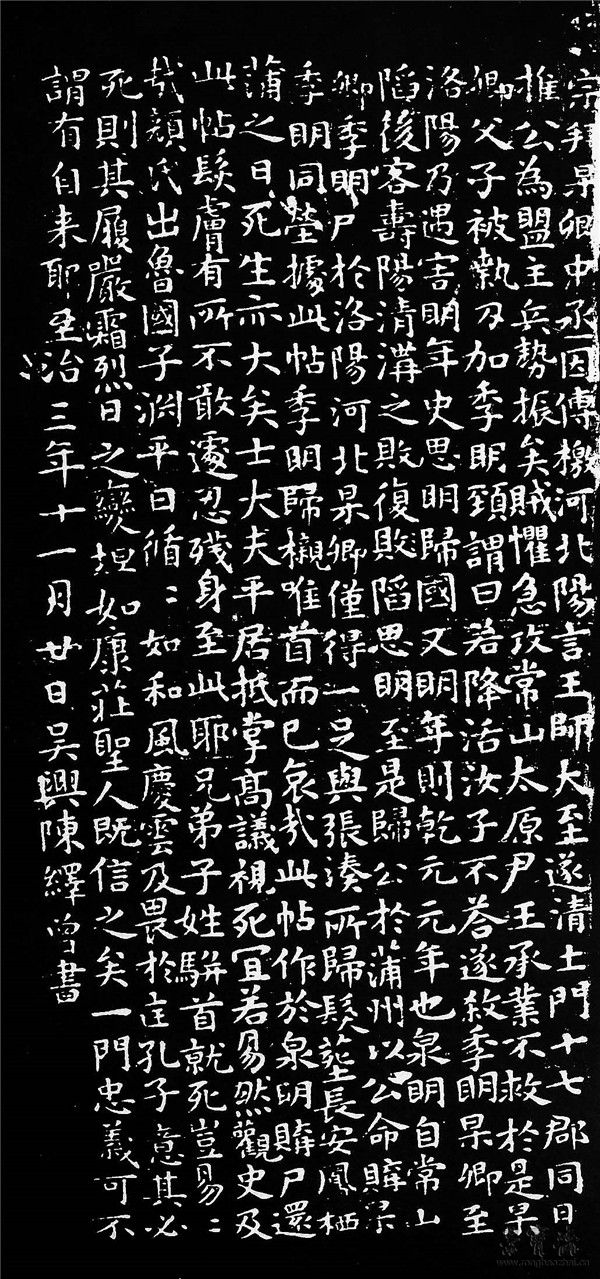 宗拜杲卿中丞因傳檄河北陽言王師大至遂清土門十七郡同日
推公為盟主兵勢振矣賊懼急攻常山太原尹王承業不救於是杲
卿父子被執刃加季明頸謂曰若降活汝子不荅遂殺季明杲卿至
洛陽乃遇害明年史思明歸國又明年則乾元元年也泉明自常山
陷後客壽陽清溝之敗復陷思明至是歸公於蒲州以公命購杲
卿季明尸於洛陽河北杲卿僅得一足與張湊所歸髮塟長安鳳栖
季明同塋據此帖季明歸櫬唯首而已哀㢤此帖作於泉明購尸還
蒲之日死生亦大矣士大夫平居抵掌髙議視死冝若易然觀史及
此帖髮膚有所不敢遽忍殘身至此耶兄弟子姓駢首就死豈易〻
㢤顔氏出魯國子淵平日循〻如和風慶雲及畏於匡孔子意其必
死則其履嚴霜烈日之變坦如康莊聖人既信之矣一門忠義可不
謂有自来耶至治三年十一月廿日吴興陳繹曽書
www.rongbaozhai.cn